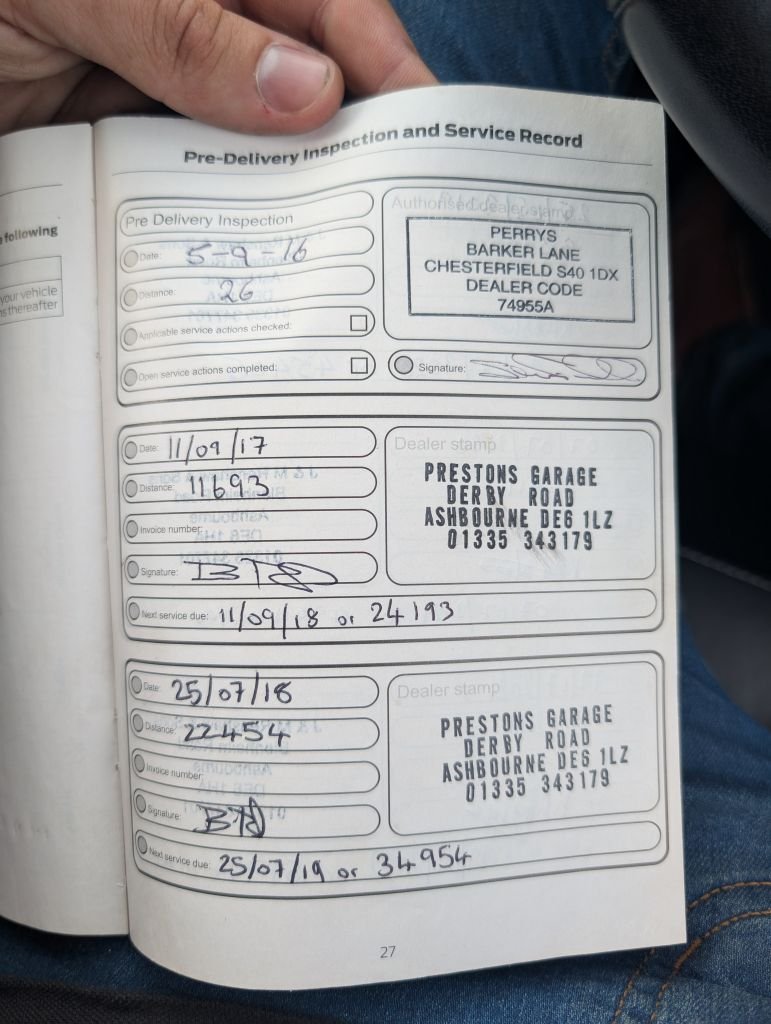 following
your vehicle
ns thereafter
Pre-Delivery Inspection and Service Record
Pre Delivery Inspection
Date: 5-9-16
Distance: 26
Applicable service actions checked:
Open service actions completed:
Authorised dealer stamp
PERRYS
BARKER LANE
CHESTERFIELD S40 1DX
DEALER CODE
74955A
Signature:
Date: 11/09/17
Distance: 11693
Invoice number:
Signature:
Next service due: 11/09/18 or 24193
Dealer stamp
PRESTONS GARAGE
DERBY ROAD
ASHBOURNE DE6 1LZ
01335 343179
Date: 25/07/18
Distance: 22454
Invoice number:
Signature:
Next service due: 25/07/19 or 34954
Dealer stamp
PRESTONS GARAGE
DERBY ROAD
ASHBOURNE DE6 1LZ
01335 343179
27